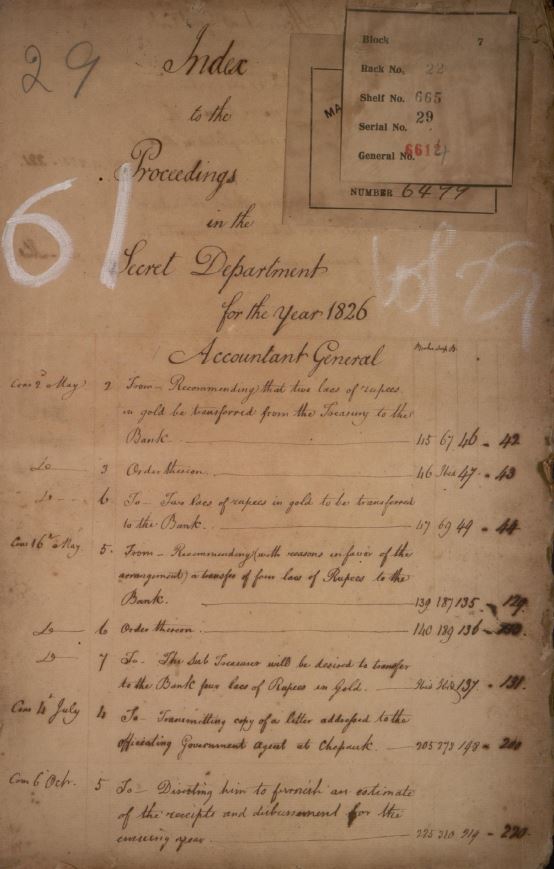 29
Block 7
Rack No. 22
Shelf No. 665
Serial No. 29
General No. 6612
MA
NUMBER 6477
Index
to the
Proceedings
in the
Secret Department
for the Year 1826
61
Vol 29
Accountant General
Cons 2d May 2 From - Recommending that two lacs of rupees
in gold be transferred from the Treasury to the
Bank 45 67 46 - 42
Do 3 Order thereon. 46 Ibid 47 - 43
Do 6 To - Two lacs of rupees in gold to be transferred
to the Bank. 47 69 49 - 44
Cons 16th May 5. From - Recommending (with reasons in favor of the
arrangement) a transfer of four lacs of Rupees to the
Bank. 139 187 135 - 129
Do 6 Order thereon 140 189 136 -
Do 7 To - The Sub Treasurer will be desired to transfer
to the Bank four lacs of Rupees in Gold. Ibid Ibid 137 - 131.
Cons 4th July 4 To - Transmitting copy of a letter addressed to the
officiating Government Agent at Chepauk. 205 273 198 - 200
Cons 6th Octr. 5 To - Directing him to furnish an estimate
of the receipts and disbursement for the
ensuing year. 225 310 219 - 220